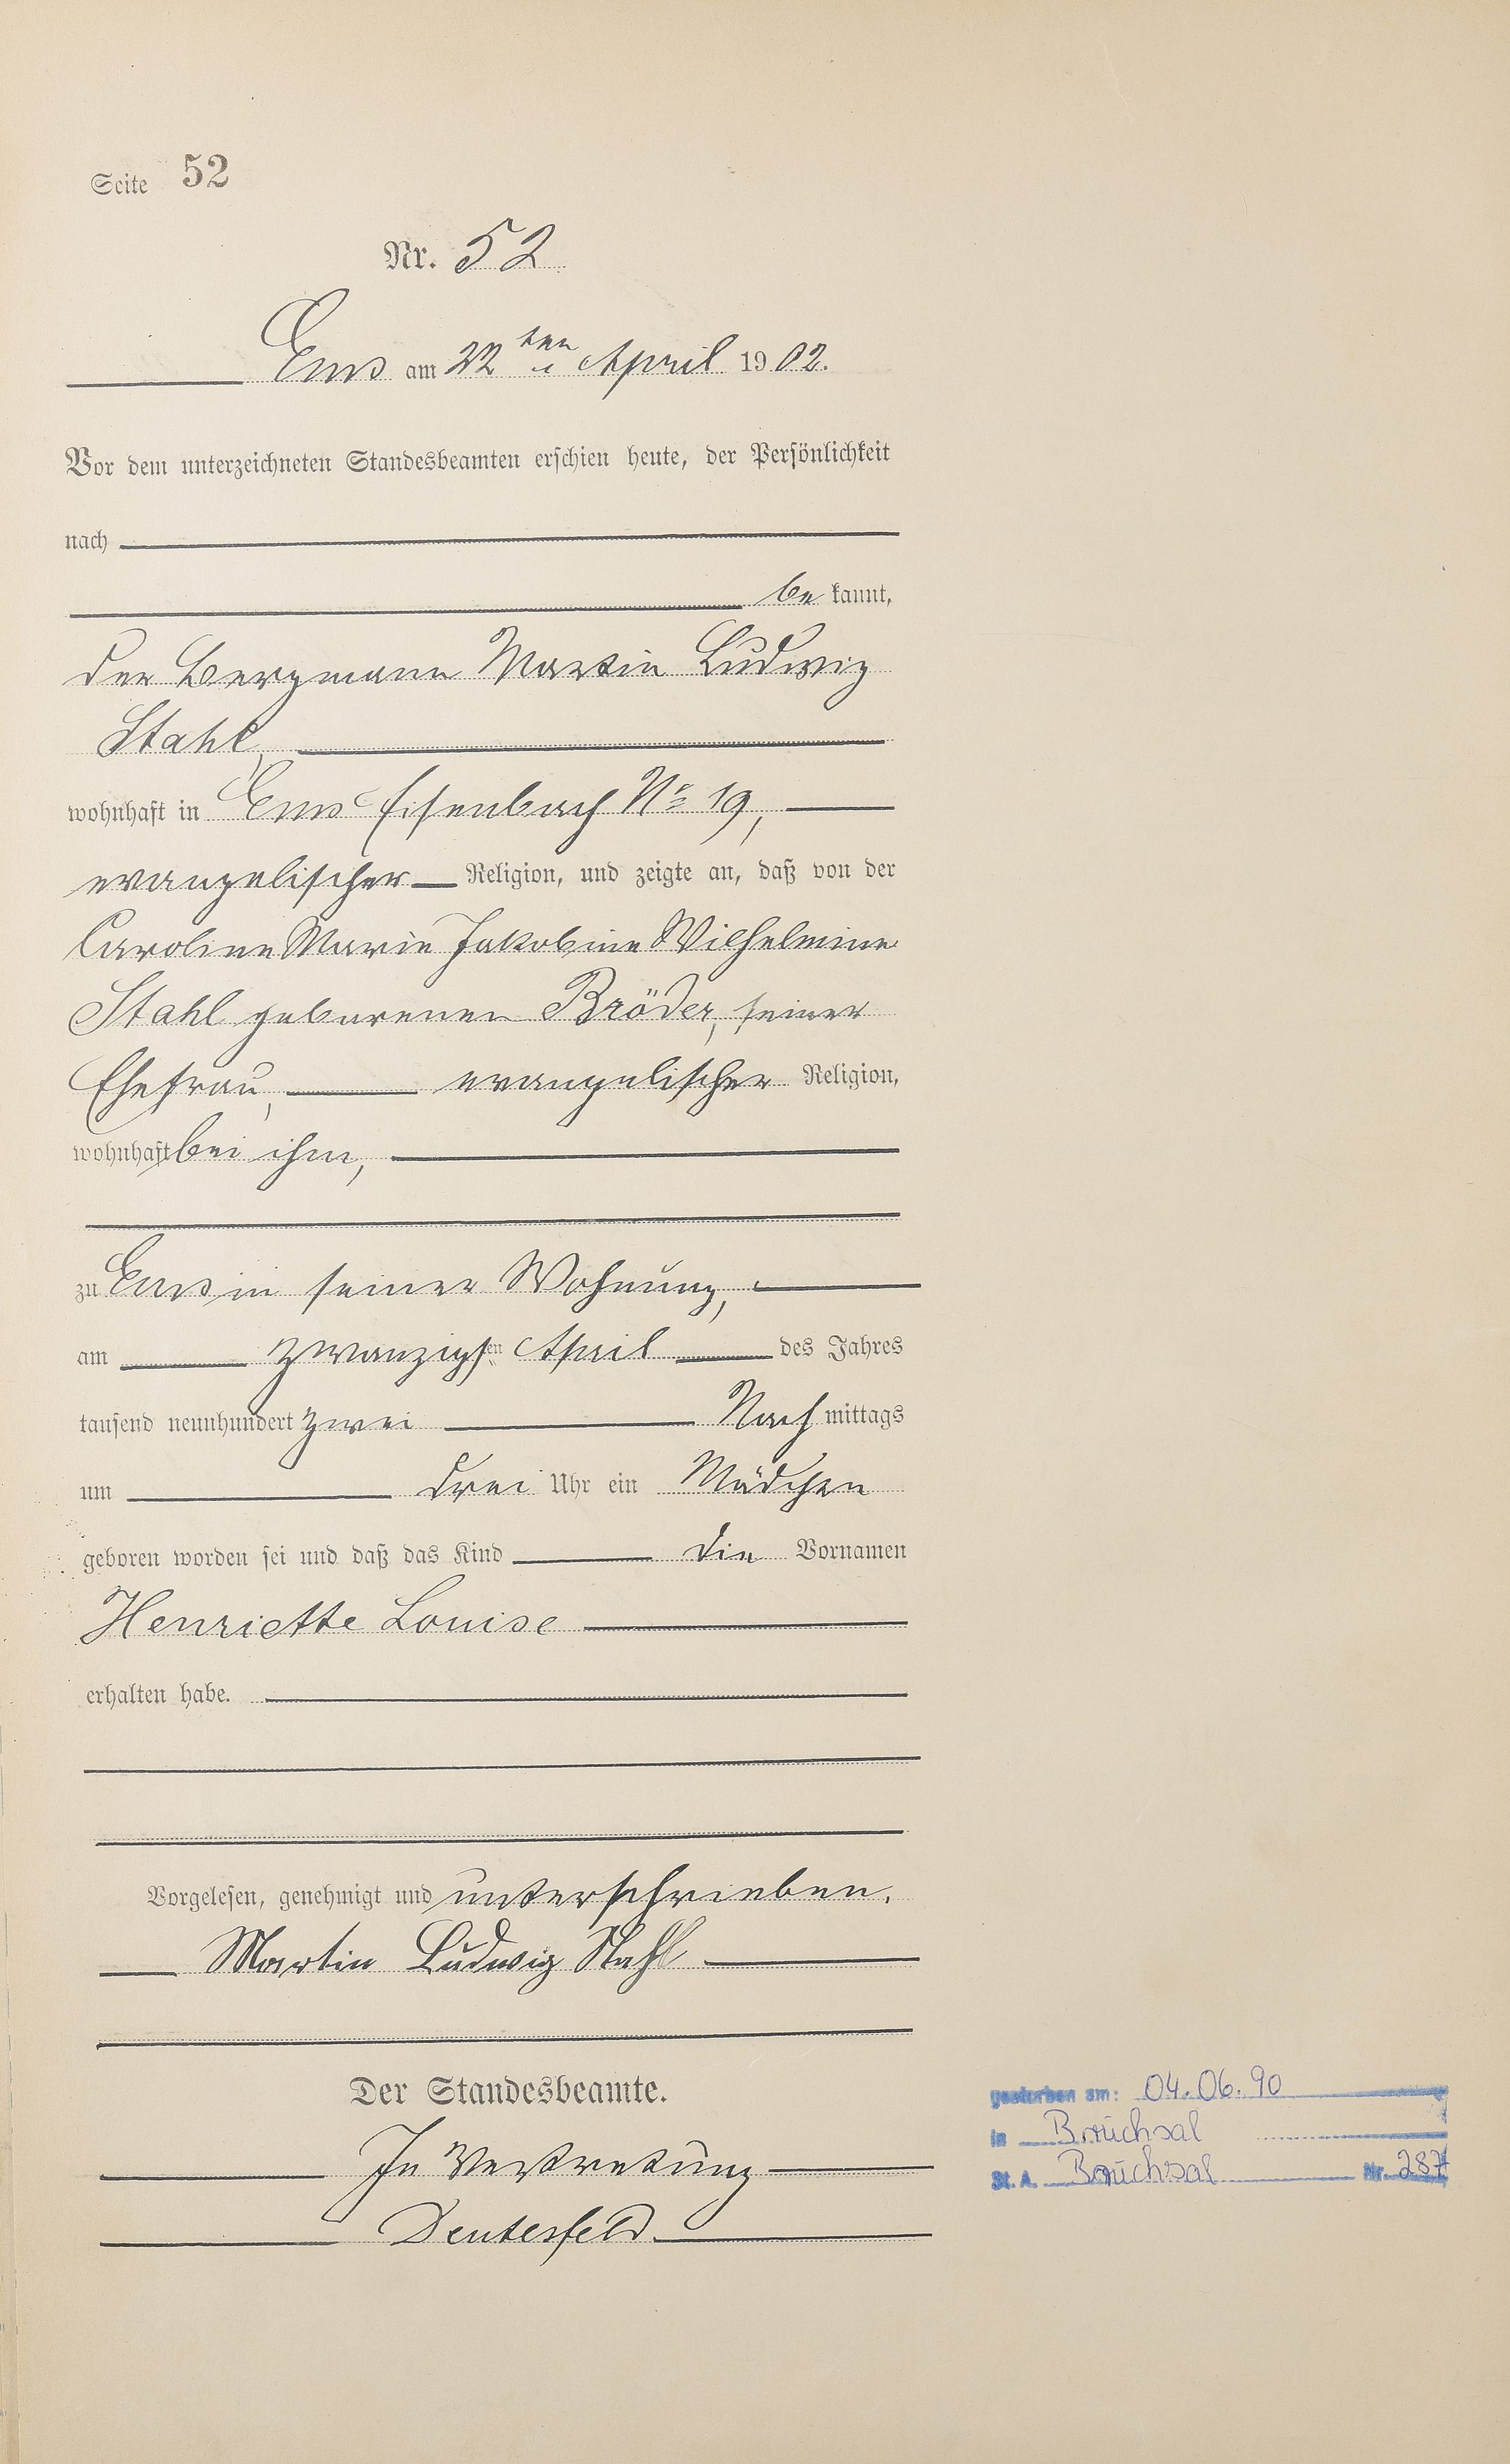 Seite 52
Nr. 52
Ems am 22ten April 1902.
Vor dem unterzeichneten Standesbeamten erschien heute, der Persönlichkeit
nach
be kannt,
der Bergmann Martin Ludwig
Stahl,
wohnhaft in Ems Eisenbach No 19,
evangelischer Religion, und zeigte an, daß von der
Caroline Marie Jakobine Wilhelmine
Stahl geborenen Bröder, seiner
Ehefrau, evangelischer Religion,
wohnhaft bei ihm,
zu Ems in seiner Wohnung,
am zwanzigsten April des Jahres
tausend neunhundert zwei Nach mittags
um drei Uhr ein Mädchen
geboren worden sei und daß das Kind die Vornamen
Henriette Louise
erhalten habe.
Vorgelesen, genehmigt und unterschrieben.
Martin Ludwig Stahl
Der Standesbeamte.
In Vertretung
Deutesfeld
gestorben am: 04.06.90
in Bruchsal
St. A. Bruchsal Nr. 287